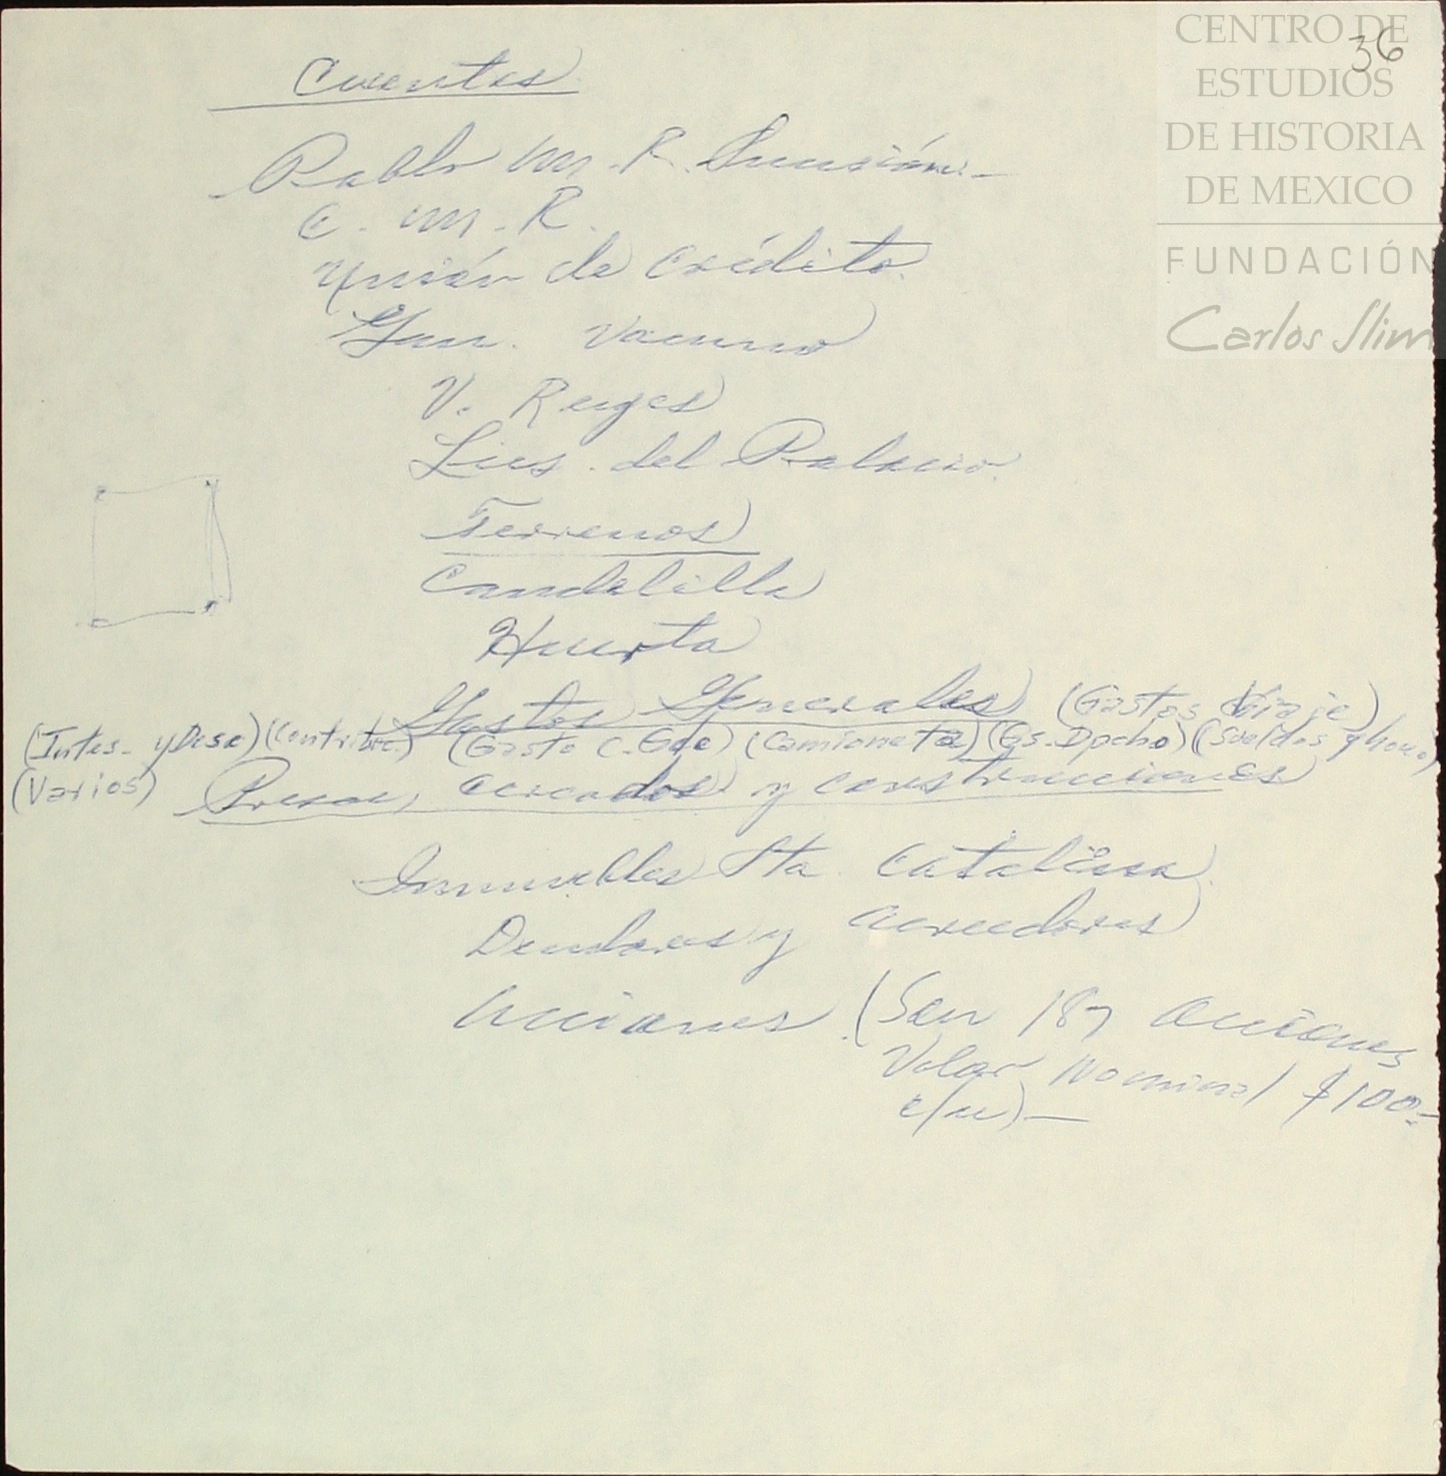 CENTRO DE
ESTUDIOS
DE HISTORIA
DE MEXICO
FUNDACIÓN
Carlos Slim
36
Cuentas
Pablo M. R. Sucesión.-
C. M. R.
Unión de Crédito.
Gan. Vacuno
V. Reyes
Lics. del Palacio.
Terrenos
Candelilla
Huerta
Gastos Generales (Gastos Viaje)
(Intes. y Dese) (Contribc.) (Gasto C. Gde) (Camioneta) (Gs. Dpcho) (Sueldos y hono)
(Varios) Presas, cercados y construcciones
Inmuebles Sta Catalina.
Deudores y acreedores
Acciones. (Son 187 acciones
Valor Nominal $100.-
c/u)-